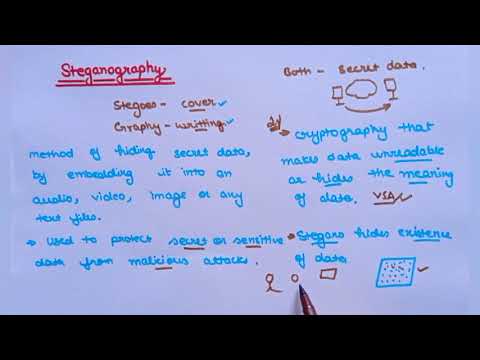 Steganography
Stegos - cover
Graphy - writting
method of hiding secret data,
by embedding it into an
audio, video, image or any
text files.
→ Used to protect secret or sensitive
data from malicious attacks.
Both - secret data.
→ Cryptography that
makes data unreadable
or hides the meaning
of data.
→ Stegano hides existence
of data